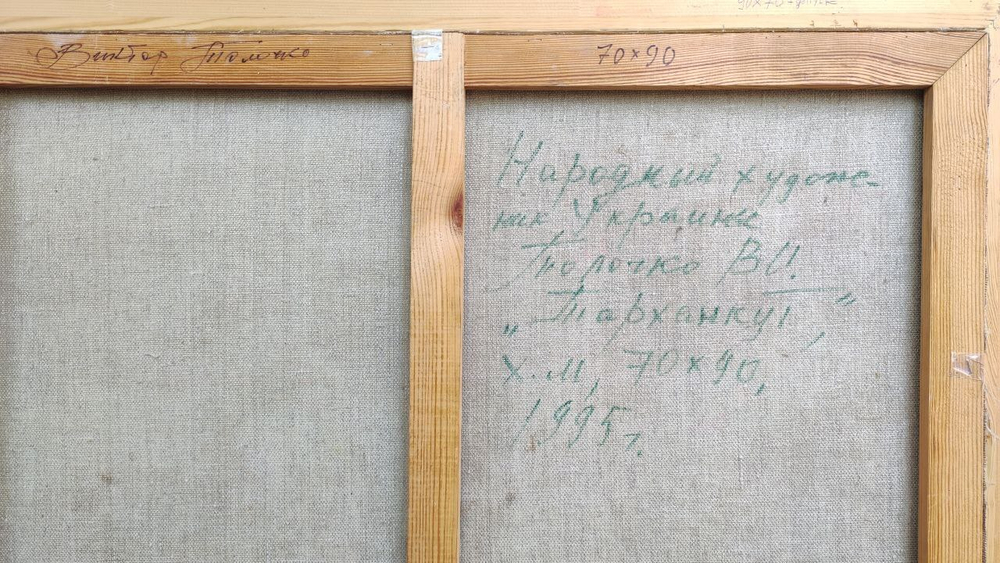 Виктор Толочко 70×90
Народный художе-
ник Украины
Толочко В.И.
„Тарханкут",
х.м, 70×90,
1995г.